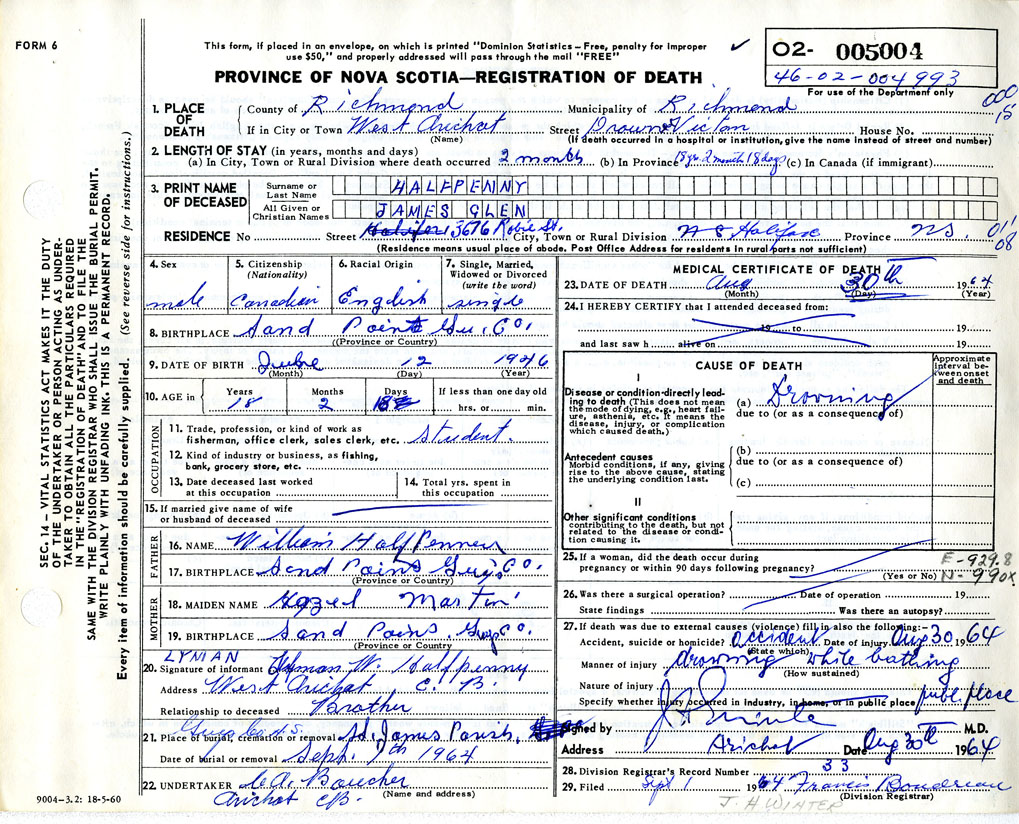 FORM 6
This form, if placed in an envelope, on which is printed "Dominion Statistics – Free, penalty for improper
use $50," and properly addressed will pass through the mail "FREE"
✓
02- 005004
46-02-004993
For use of the Department only
PROVINCE OF NOVA SCOTIA—REGISTRATION OF DEATH
SEC. 14 – VITAL STATISTICS ACT MAKES IT THE DUTY
OF THE UNDERTAKER OR PERSON ACTING AS UNDER-
TAKER TO OBTAIN ALL THE PARTICULARS REQUIRED
IN THE "REGISTRATION OF DEATH" AND TO FILE THE
SAME WITH THE DIVISION REGISTRAR WHO SHALL ISSUE THE BURIAL PERMIT.
WRITE PLAINLY WITH UNFADING INK. THIS IS A PERMANENT RECORD.
Every item of information should be carefully supplied. (See reverse side for instructions.)
1. PLACE OF DEATH
County of Richmond Municipality of Richmond
000
15
If in City or Town West Arichat Street House No.
(Name) (If death occurred in a hospital or institution, give the name instead of street and number)
2. LENGTH OF STAY (in years, months and days)
(a) In City, Town or Rural Division where death occurred 2 month (b) In Province 18 yr. 2 month 18 days (c) In Canada (if immigrant)
3. PRINT NAME OF DECEASED
Surname or Last Name HALFPENNY
All Given or Christian Names JAMES GLEN
RESIDENCE No Street Halifax 3676 Robie St. City, Town or Rural Division Halifax Province N.S.
01
08
(Residence means usual place of abode. Post Office Address for residents in rural parts not sufficient)
4. Sex
male
5. Citizenship
(Nationality)
Canadian
6. Racial Origin
English
7. Single, Married,
Widowed or Divorced
(write the word)
single
8. BIRTHPLACE Sand Point Gu. Co.
(Province or Country)
9. DATE OF BIRTH 12 1946
(Month) (Day) (Year)
10. AGE in
Years 18
Months 2
Days 18
If less than one day old
hrs. or min.
OCCUPATION
11. Trade, profession, or kind of work as
fisherman, office clerk, sales clerk, etc. student.
12. Kind of industry or business, as fishing,
bank, grocery store, etc.
13. Date deceased last worked
at this occupation
14. Total yrs. spent in
this occupation
15. If married give name of wife
or husband of deceased
FATHER
16. NAME William Halfpenny
17. BIRTHPLACE Sand Point Guys. Co.
(Province or Country)
MOTHER
18. MAIDEN NAME Hazel Martin
19. BIRTHPLACE Sand Point. Guy Co.
(Province or Country)
LYMAN
20. Signature of informant Lyman W. Halfpenny
Address West Arichat C. B.
Relationship to deceased Brother
Guys Co N.S.
21. Place of burial, cremation or removal St. James Parish,
Date of burial or removal Sept. 1964
22. UNDERTAKER C.A. Boucher
(Name and address)
Arichat CB.
9004-3.2: 18-5-60
MEDICAL CERTIFICATE OF DEATH
23. DATE OF DEATH Aug 30th 1964
(Month) (Day) (Year)
24. I HEREBY CERTIFY that I attended deceased from:
19 to 19
and last saw h alive on 19
CAUSE OF DEATH
Approximate
interval be-
tween onset
and death
I
Disease or condition directly lead-
ing to death (This does not mean
the mode of dying, e.g., heart fail-
ure, asthenia, etc. It means the
disease, injury, or complication
which caused death.)
(a) Drowning
due to (or as a consequence of)
Antecedent causes
Morbid conditions, if any, giving
rise to the above cause, stating
the underlying condition last.
(b)
due to (or as a consequence of)
(c)
II
Other significant conditions
contributing to the death, but not
related to the disease or condi-
tion causing it.
25. If a woman, did the death occur during
pregnancy or within 90 days following pregnancy?
(Yes or No)
E-929.8
N-990X
26. Was there a surgical operation? Date of operation 19
State findings Was there an autopsy?
27. If death was due to external causes (violence) fill in also the following:–
Accident, suicide or homicide? accident Date of injury Aug 30 1964
(State which)
Manner of injury drowning while bathing
(How sustained)
Nature of injury
Specify whether injury occurred in industry, in home, or in public place publ. place
Signed by M.D.
Address Arichat Date Aug 30th 1964
28. Division Registrar's Record Number 33
29. Filed Sept 1 1964 Francis Boudreau
(Division Registrar)
J. H WINTER